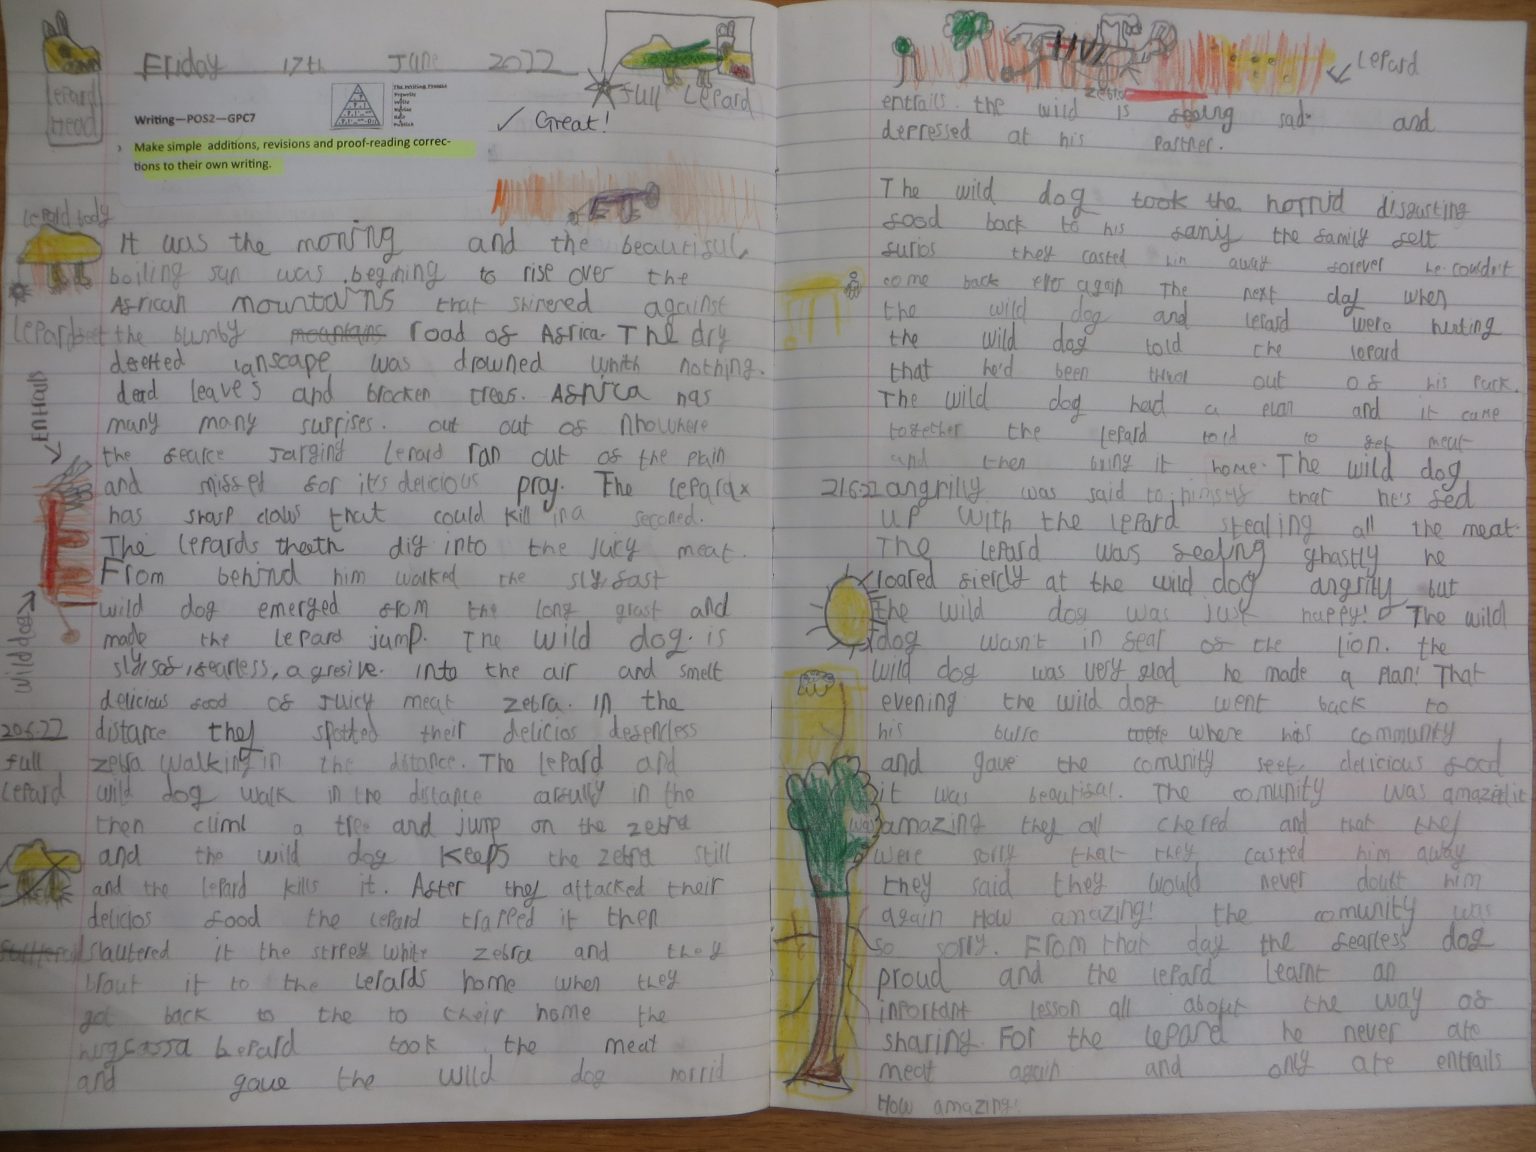 Lepard
Head
Friday 17th June 2022
Full Lepard
The Writing Process
Prewrite
Write
Revise
Edit
Publish
Writing—POS2—GPC7
✓ Great!
Make simple additions, revisions and proof-reading correc-
tions to their own writing.
Lepard body
It was the moning and the beautiful
boiling sun was begining to rise over the
African mountains that shinered against
the bumby mountans road of Africa. The dry
deserted lanscape was drowned whith nothing.
dead leaves and brocken trees. Africa has
many many surprises. out out of nhowhere
the fearce Jarging Lepard ran out of the plain
and missed for it's delicious pray. The Lepard
has sharp claws that could kill in a seconed.
The Lepards theeth dig into the juicy meat.
From behind him walked the sly, fast
wild dog emerged from the long grast and
made the Lepard jump. The wild dog is
sly, fearless, agresive. into the air and smelt
delicious food of juicy meat zebra. In the
20.6.22 distance they spotted their delicios defenless
full zebra walking in the distance. The Lepard and
Lepard wild dog walk in the distance carfully in the
then climb a tree and jump on the zebra
and the wild dog keeps the zebra still
and the Lepard kills it. After they attacked their
delicios food the Lepard trapped it then
slautered it the stripey white zebra and they
braut it to the Lepards home when they
got back to the to their home the
Lepard took the meat
and gave the wild dog horrid
Entrails
wild dog
Lepard
zebra
entrails. the wild is feeling sad and
depressed at his partner.
The wild dog took the horrid disgusting
food back to his famly the family felt
furios they casted him away forever he couldn't
come back ever again The next day when
the wild dog and Lepard were hunting
the wild dog told the Lepard
that he'd been out of his pack.
The wild dog had a plan and it came
together the Lepard told to get meat
and then bring it home. The wild dog
21.6.22 angrilly was said to himself that he's fed
up with the Lepard stealing all the meat.
The Lepard was feeling ghastly he
roared fiercly at the wild dog angrily but
the wild dog was just happy! The wild
dog wasn't in fear of the lion. the
wild dog was very glad he made a plan! That
evening the wild dog went back to
his burro where his community
and gave the comunity delicious food
it was beautifal. The comunity was
amazing they all chered and that they
were sorry that they casted him away
they said they would never doutt him
again How amazing! the comunity was
so sorry. From that day the fearless dog
proud and the Lepard learnt an
inportant lesson all about the way of
sharing. For the Lepard he never ate
meat again and only ate entrails
How amazing!